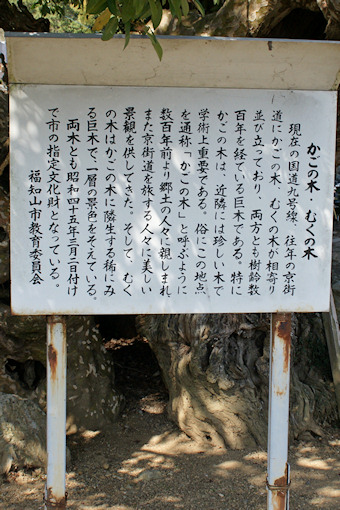 かごの木・むくの木
現在の国道九号線、往年の京街
道にかごの木、むくの木が相寄り
並び立っており、両方とも樹齢数
百年を経ている巨木である。特に
かごの木は、近隣には珍しい木で
学術上重要である。俗にこの地点
を通称「かごの木」と呼ぶように
数百年前より郷土の人々に親しまれ
また京街道を旅する人々に美しい
景観を供してきた。そして、むく
の木はかごの木に隣生する稀にみ
る巨木で、一層の景色をそえている。
両木とも昭和四十五年三月三日付け
で市の指定文化財となっている。
福知山市教育委員会